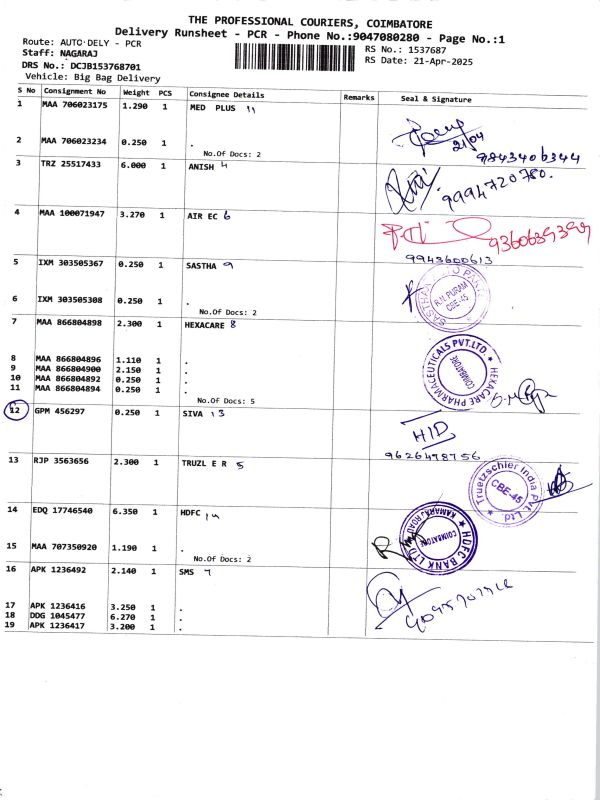 THE PROFESSIONAL COURIERS, COIMBATORE
Delivery Runsheet - PCR - Phone No.:9047080280 - Page No.:1
Route: AUTO DELY - PCR
RS No.: 1537687
Staff: NAGARAJ
RS Date: 21-Apr-2025
DRS No.: DCJB153768701
Vehicle: Big Bag Delivery
S No Consignment No Weight PCS Consignee Details Remarks Seal & Signature
1 MAA 706023175 1.290 1 MED PLUS 11
21/04
2 MAA 706023234 0.250 1 .
No.Of Docs: 2
9843406344
3 TRZ 25517433 6.000 1 ANISH 4
9994720780.
4 MAA 100071947 3.270 1 AIR EC 6
9360639399
9943600613
5 IXM 303505367 0.250 1 SASTHA 9
R.N.PURAM
CBE-45
6 IXM 303505308 0.250 1 .
No.Of Docs: 2
7 MAA 866804898 2.300 1 HEXACARE 8
HEXACARE PHARMACEUTICALS PVT.LTD.
COIMBATORE
8 MAA 866804896 1.110 1 .
9 MAA 866804900 2.150 1 .
10 MAA 866804892 0.250 1 .
11 MAA 866804894 0.250 1 .
No.Of Docs: 5
12 GPM 456297 0.250 1 SIVA 13
H/D
9626478756
13 RJP 3563656 2.300 1 TRUZL E R 5
Truetzschler India Pvt. Ltd.
CBE-45
14 EDQ 17746540 6.350 1 HDFC 14
HDFC BANK LTD
KAMARAJ ROAD
COIMBATORE
15 MAA 707350920 1.190 1 .
No.Of Docs: 2
16 APK 1236492 2.140 1 SMS 7
17 APK 1236416 3.250 1 .
18 DDG 1045477 6.270 1 .
19 APK 1236417 3.200 1 .